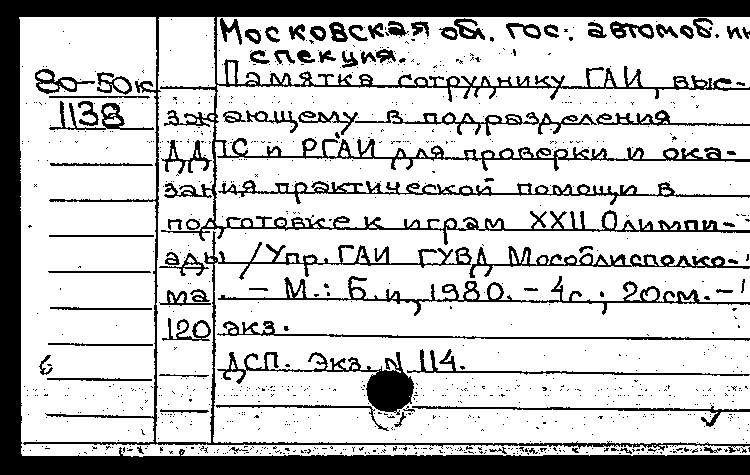 Московская обл. гос. автомоб. ин
спекция.
80-50к Памятка сотруднику ГАИ, выс-
1138 зжающему в подразделения
ДДПС и РГАИ для проверки и ока-
зания практической помощи в
подготовке к играм XXII Олимпи-
ады / Упр. ГАИ ГУВД Мособлисполко-
ма. – М.: Б.и., 1980. – 4с.; 20см. –
120 экз.
ДСП. Экз. N 114.
6